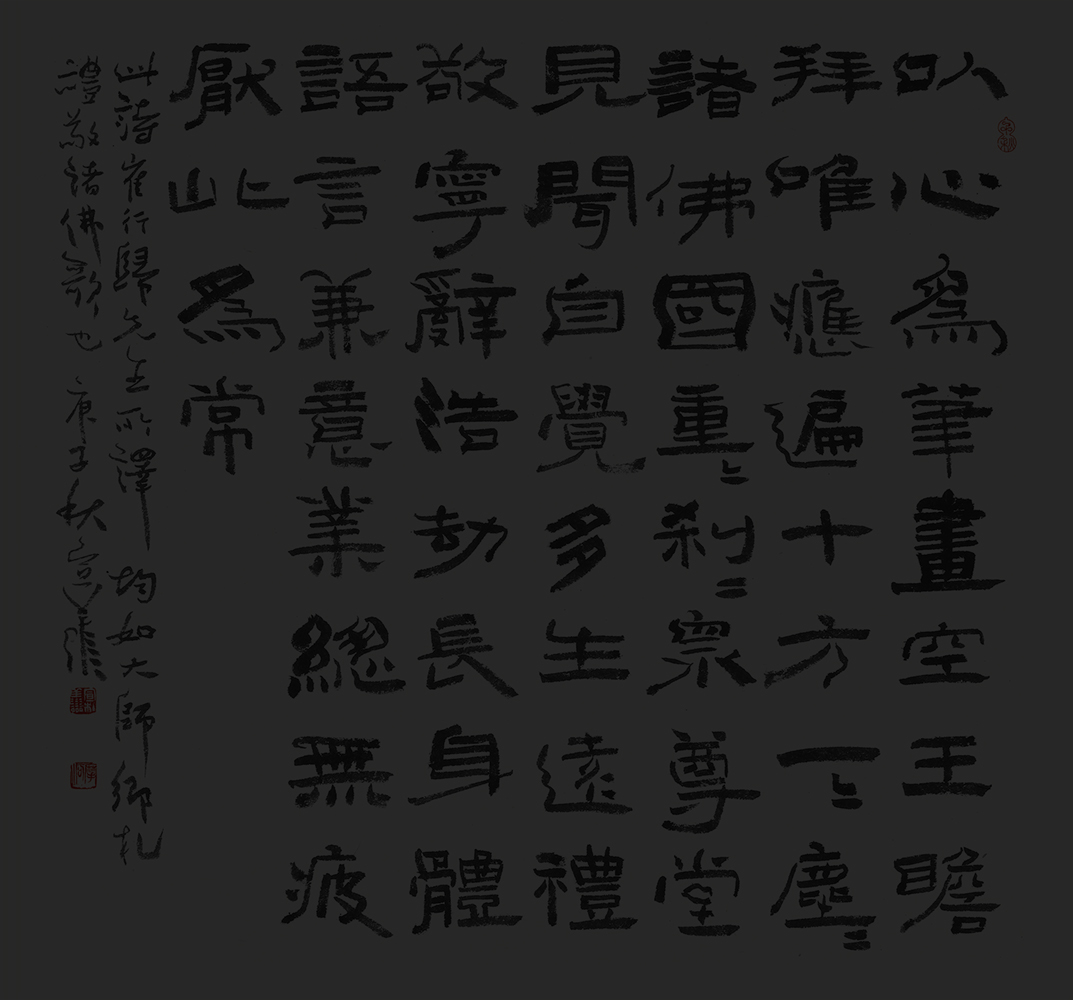 以心爲筆畫空王瞻
拜唯應遍十方一〻塵〻
諸佛國重〻刹〻衆尊堂
見聞自覺多生遠禮
敬寧辭浩劫長身體
語言兼意業總無疲
厭此爲常
此詩崔行歸先生所譯 均如大師鄕札
禮敬諸佛歌也 庚子秋